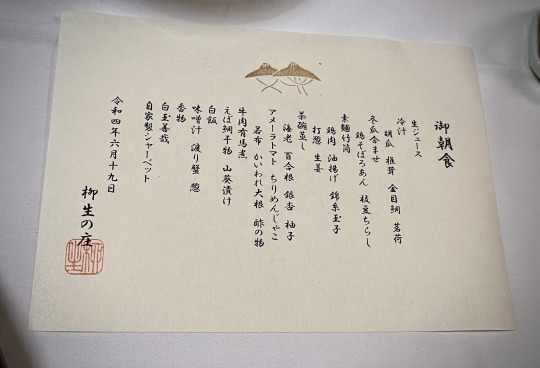 御朝食
生ジュース
冷汁
胡瓜 椎茸 金目鯛 茗荷
冬瓜含ませ
鶏そぼろあん 枝豆ちらし
素麺竹筒
鶏肉 油揚げ 錦糸玉子
打葱 生姜
茶碗蒸し
海老 百合根 銀杏 柚子
アメーラトマト ちりめんじゃこ
若布 かいわれ大根 酢の物
牛肉有馬煮
えぼ鯛干物 山葵漬け
白飯
味噌汁 渡り蟹 葱
香物
白玉善哉
自家製シャーベット
令和四年六月十九日
柳生の庄